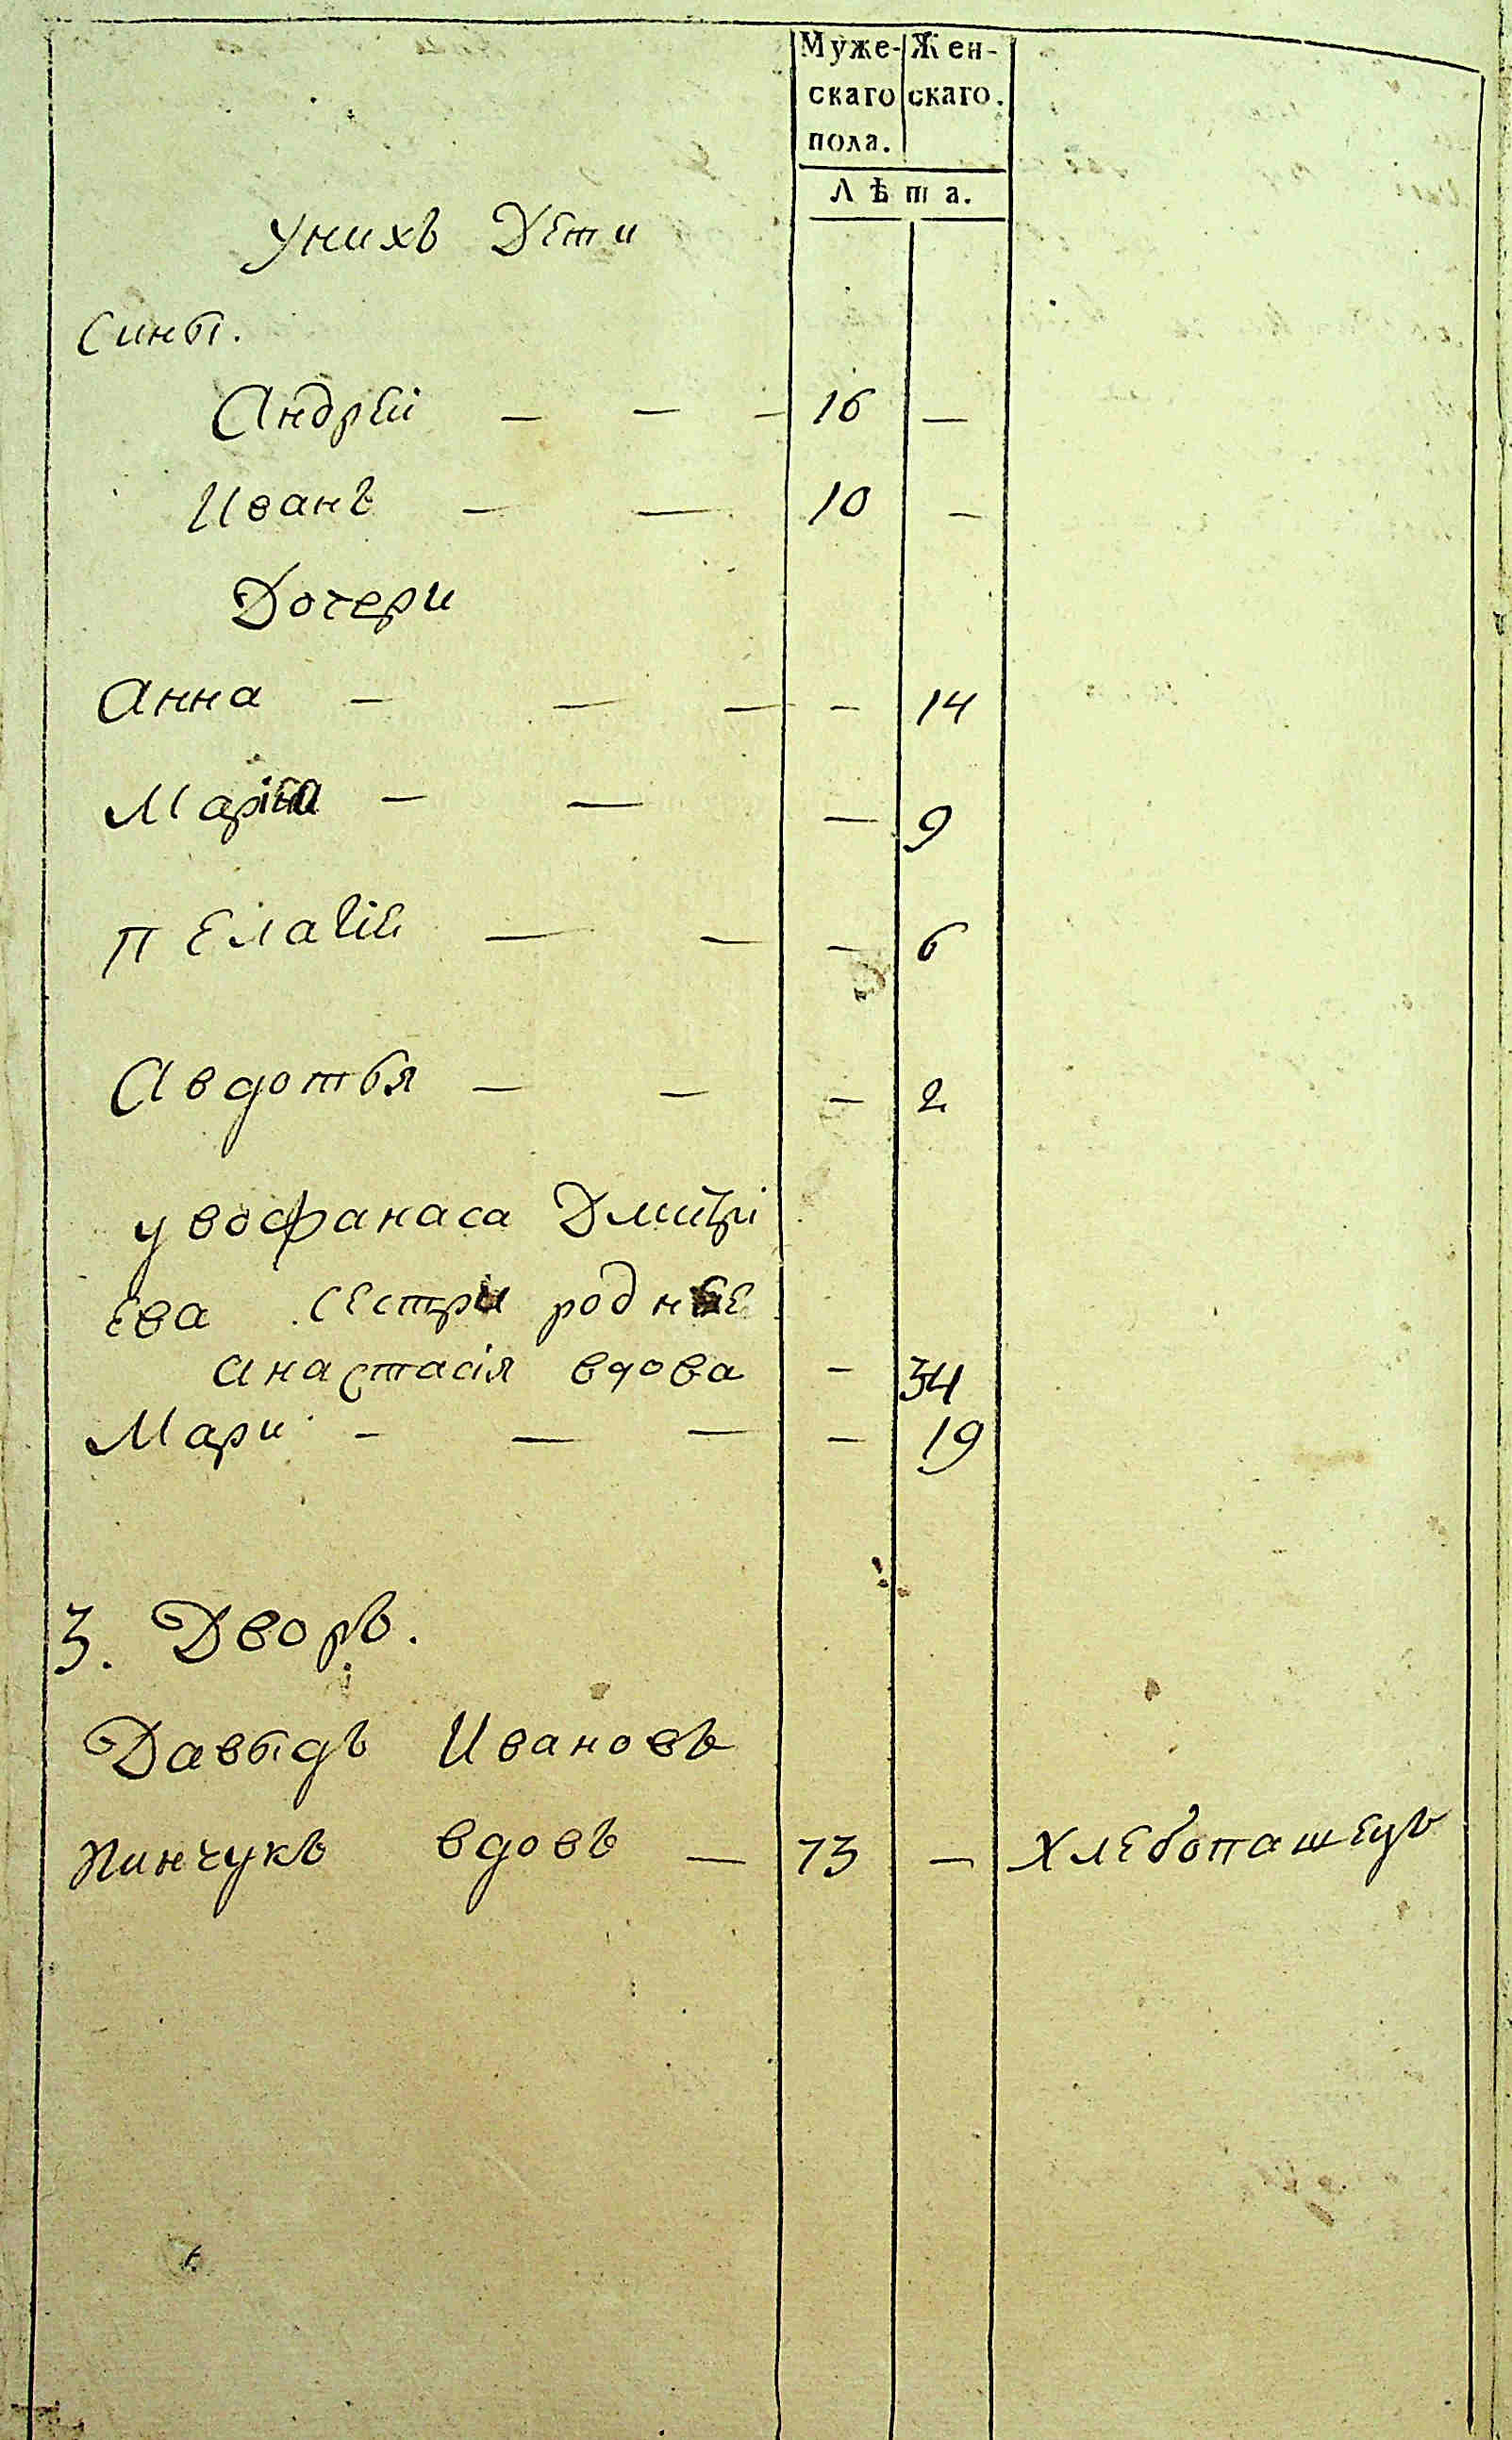 Муже- Жен-
скаго скаго.
пола.
Лѣта.
унихъ Дети
Сины.
Андрей — — — 16 —
Иванъ — — 10 —
Дочери
Анна — — — — 14
— — — 9
пелагіе — — — 6
Авдотья — — — 2
у вофанаса Дмитрі
ева сестри родные
анастасія вдова — 34
Мари — — — — 19
3. Дворъ.
Давыдъ Ивановъ
Пинчукъ вдовъ — 73 — хлебопашецъ